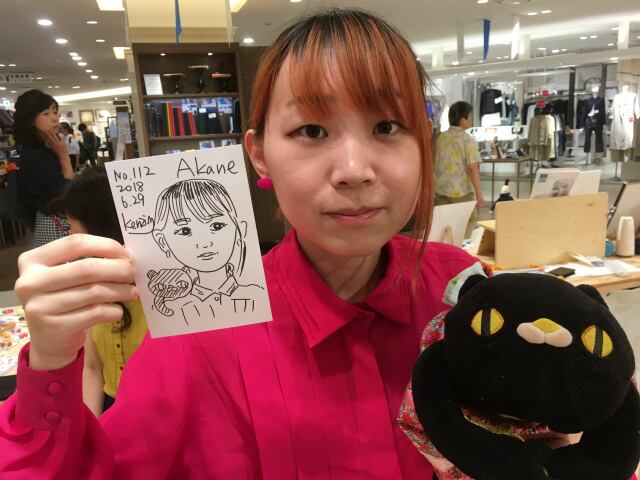 No.112
Akane
2018
6.29
Kenain